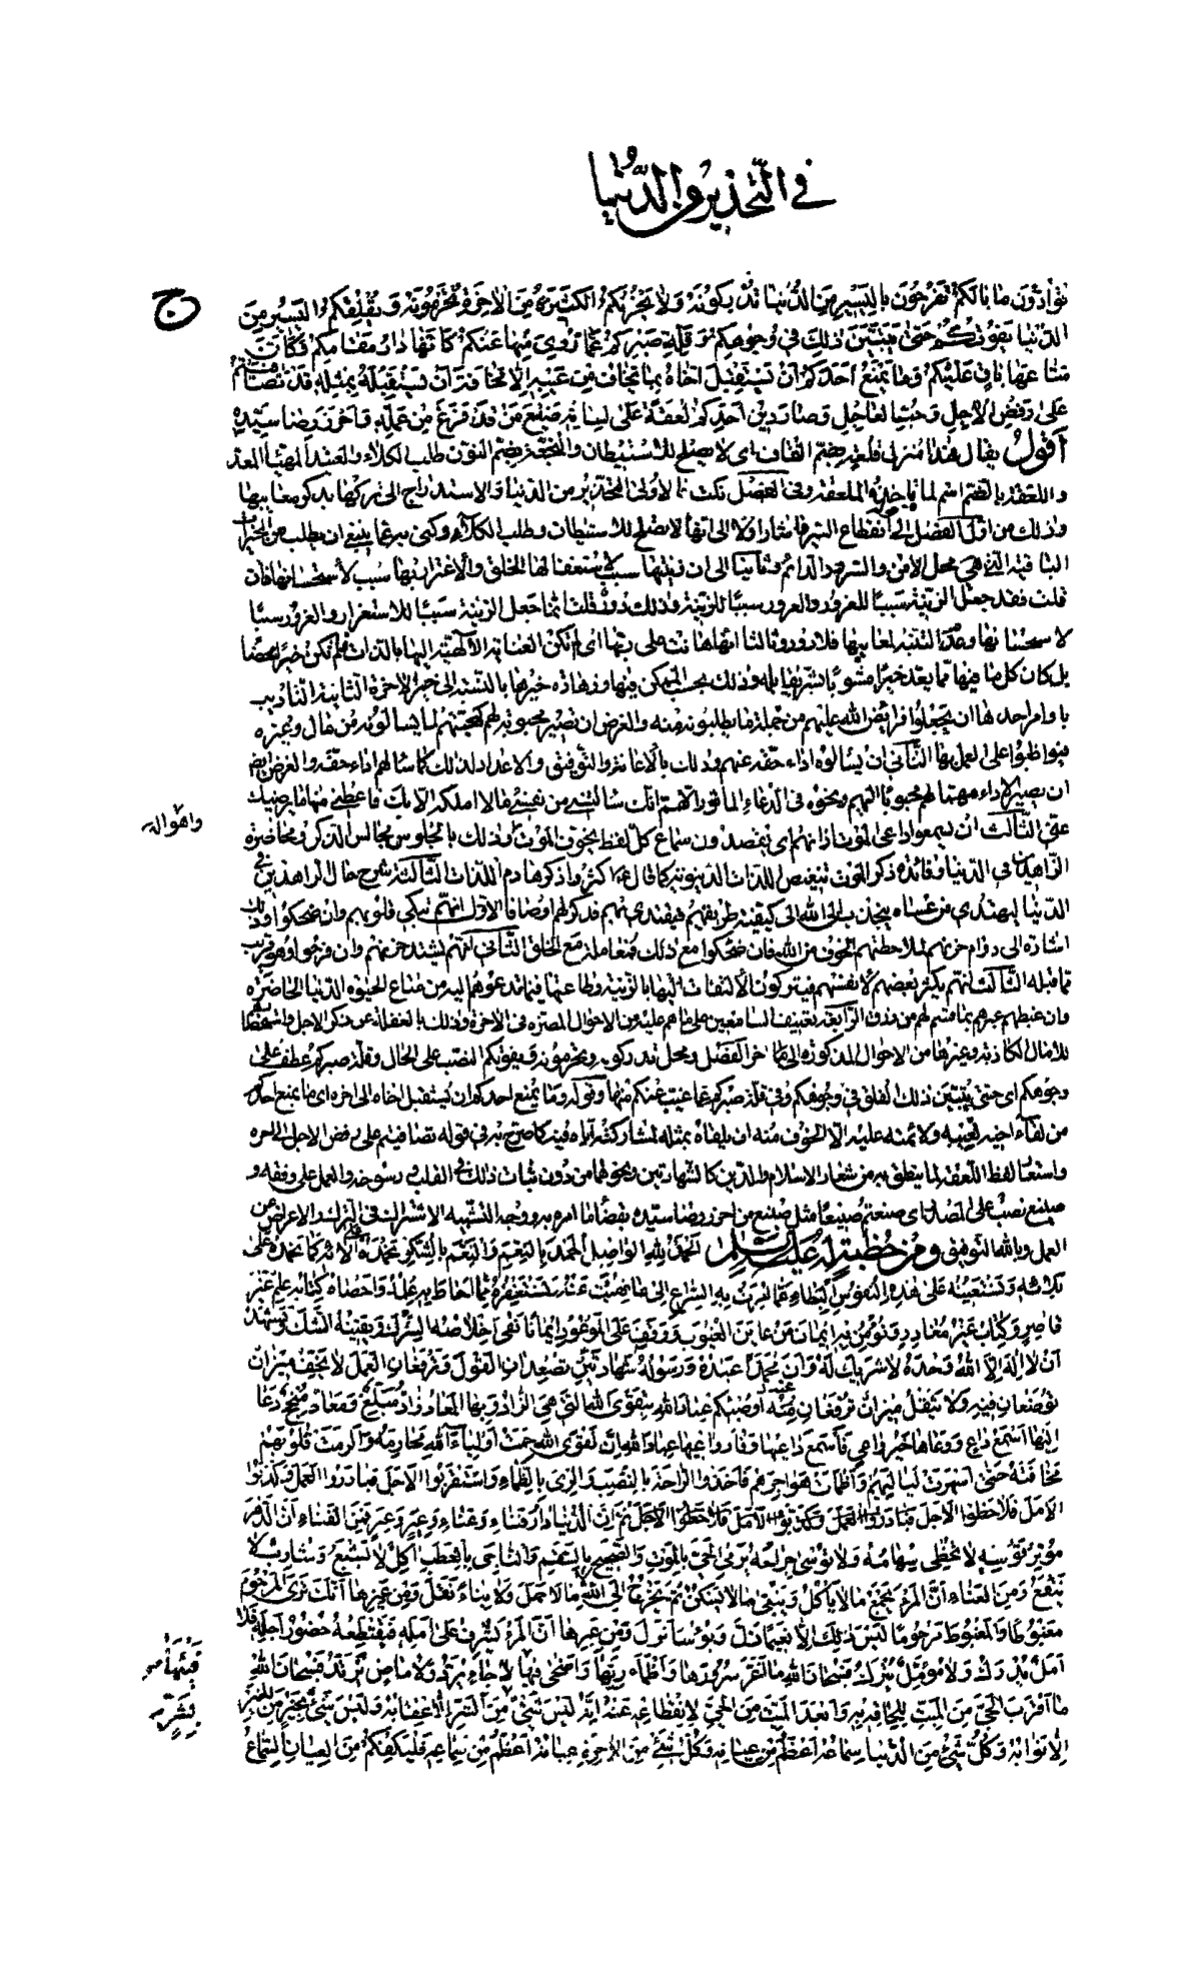 في التحذير من الدنيا
توادون ما بالكم تفرحون باليسير من الدنيا تدركونه ولا يحزنكم الكثير من الاخرة تحرمونه ويقلقكم اليسير من
الدنيا يفوتكم حتى يتبين ذلك في وجوهكم وقلة صبركم عما زوي منها عنكم كانها دار مقامكم وكان
متاعها باق عليكم وما يمنع احدكم ان يستقبل اخاه بما يخاف من عيبه الا مخافة ان يستقبله بمثله قد تصافيتم
على رفض الاجل وحب العاجل وصار دين احدكم لعقة على لسانه صنيع من قد فرغ من عمله واحرز رضا سيده
اقول يقال هذا منزل قلعة بضم القاف اى لا يصلح للاستيطان والنجعة بضم النون طلب الكلاء والعتيد المهيا المعد
واللعقة بالضم اسم لما تاخذه الملعقة وفي الفصل نكت الاولى التحذير من الدنيا والاستدراج الى تركها بذكر معايبها
وذلك من اول الفصل الى انقطاع السير فاشار اولا الى انها لا تصلح للاستيطان وطلب الكلاء وكنى به عما ينبغي ان يطلب من الخيرات
فان
قلت فقد جعل الزينة سببا للغرور والغرور سببا للزينة وذلك دور قلت انما جعل الزينة سببا للاستغرار والغرور سببا
لاستحسانها وعدم التنبه لمعايبها فلا دور وثالثا انها هانت على ربها اى لم تكن العناية الالهية اليها بالذات فلم تكن خيرا محضا
بل كان كل ما فيها مما يعد خيرا مشوبا بشر يقابله وذلك بحسب الممكن فيها وزهادة خيرها بالنسبة الى خير الاخرة الثانية التاديب
باوامر احدها ان يجعلوا فرايض الله عليهم من جملة ما يطلبونه منه والغرض ان تصير محبوبة لهم كمحبتهم لما يسالونه من مال وغيره
فيواظبوا على العمل بها الثاني ان يسالوه اداء حقه عنهم وذلك بالاعانة والتوفيق والاعداد لذلك كما سالهم اداء حقه والغرض ايضا
ان يصير الاداء مهما لهم محبوبا اليهم ونحوه في الدعاء الماثور اللهم انك سالتني من نفسي مالا املكه الا بك فاعطني منها ما يرضيك
عني الثالث ان يسمعوا داعى الموت اذانهم اى يقصدون سماع كل لفظ يخوف الموت وذلك بالجلوس مجالس الذكر ومحاضرة
واهواله
الزاهدين في الدنيا وفائدة ذكر الموت تنغيص اللذات الدنيوية كما قال اكثروا ذكر هادم اللذات الثالثة شرح حال الزاهدين في
الدنيا ليهتدى من عساه ينجذب الى الله الى كيفية طريقهم فيقتدى بهم فذكر لهم اوصافا الاول انهم تبكي قلوبهم وان ضحكوا وذلك
اشارة الى دوام حزنهم لملاحظتهم الخوف من الله فان ضحكوا مع ذلك فمعاملة مع الخلق الثاني انهم يشتد حزنهم وان فرحوا وهو قريب
مما قبله الثالث انهم يكثر بغضهم لانفسهم فيتركون الالتفات اليها بالزينة وطاعتها فيما تدعوهم اليه من متاع الحيوة الدنيا الحاضرة
وان غبطهم غيرهم بما قسم لهم من رزق الرابعة تعنيف السامعين على ما هم عليه من الاحوال المضرة في الاخرة وذلك بالغفلة عن ذكر الاجل واستحضار
للامال الكاذبة وغيرها من الاحوال المذكورة الى اخر الفصل ومحل تدركونه وتحرمونه ويفوتكم النصب على الحال وقلة صبركم عطف على
وجوهكم اى حتى يتبين ذلك القلق في وجوهكم وفي قلة صبركم عما غيب عنكم منها وقوله وما يمنع احدكم ان يستقبل اخاه الى اخره اى ما يمنع احدكم
من لقاء اخيه بعيبه ولائمته عليه الا الخوف منه ان يلقاه بمثله لمشاركته اياه فيه كما صرح به في قوله تصافيتم على رفض الاجل الى اخره
واستعار لفظ اللعقة لما ينطق به من شعار الاسلام والدين كالشهادتين ونحوهما من دون ثبات ذلك في القلب ورسوخه والعمل على وفقه و
صنيع نصب على المصدر اى صنعتم صنيعا مثل صنيع من احرز رضا سيده بقضاء ما امره به ووجه التشبيه الاشتراك في الترك والاعراض عن
العمل وبالله التوفيق ومن خطبة له عليه السلام الحمد لله الواصل الحمد بالنعم والنعم بالشكر نحمده على الائه كما نحمده على
بلائه ونستعينه على هذه النفوس البطاء عما امرت به السراع الى ما نهيت عنه ونستغفره مما احاط به علمه واحصاه كتابه علم غير
قاصر وكتاب غير مغادر ونؤمن به ايمان من عاين الغيوب ووقف على الموعود ايمانا نفى اخلاصه الشرك ويقينه الشك ونشهد
ان لا اله الا الله وحده لا شريك له وان محمدا عبده ورسوله شهادتين تصعدان القول وترفعان العمل لا يخف ميزان
توضعان فيه ولا يثقل ميزان ترفعان منه اوصيكم عباد الله بتقوى الله التي هي الزاد وبها المعاد زاد مبلغ ومعاد منجح دعا
اليها اسمع داع ووعاها خير واع فاسمع داعيها وفاز واعيها عباد الله ان تقوى الله حمت اولياء الله محارمه والزمت قلوبهم
مخافته حتى اسهرت لياليهم واظمات هواجرهم فاخذوا الراحة بالنصب والرى بالظماء واستقربوا الاجل فبادروا العمل وكذبوا
الامل فلاحظوا الاجل فبادروا العمل وكذبوا الامل فلاحظوا الاجل ثم ان الدنيا دار فناء وعناء وغير وعبر فمن الفناء ان الدهر
موتر قوسه لا تخطى سهامه ولا توسى جراحه يرمي الحى بالموت والصحيح بالسقم والناجى بالعطب اكل لا يشبع وشارب لا
ينقع ومن العناء ان المرء يجمع ما لا ياكل ويبنى ما لا يسكن ثم يخرج الى الله لا مالا حمل ولا بناء نقل ومن غيرها انك ترى المرحوم
مغبوطا والمغبوط مرحوما ليس ذلك الا نعيما زل وبؤسا نزل ومن عبرها ان المرء يشرف على امله فيقتطعه حضور اجله فلا
امل يدرك ولا مؤمل يترك فسبحان الله ما اغر سرورها واظماء ريها واضحى فيئها لا جاء يرد ولا ماض يرتد فسبحان الله
ما اقرب الحى من الميت للحاقه به وابعد الميت من الحى لانقطاعه عنه انه ليس شيء بشر من الشر الا عقابه وليس شيء بخير من الخير
الا ثوابه وكل شيء من الدنيا سماعه اعظم من عيانه وكل شيء من الاخرة عيانه اعظم من سماعه فليكفكم من العيان السماع